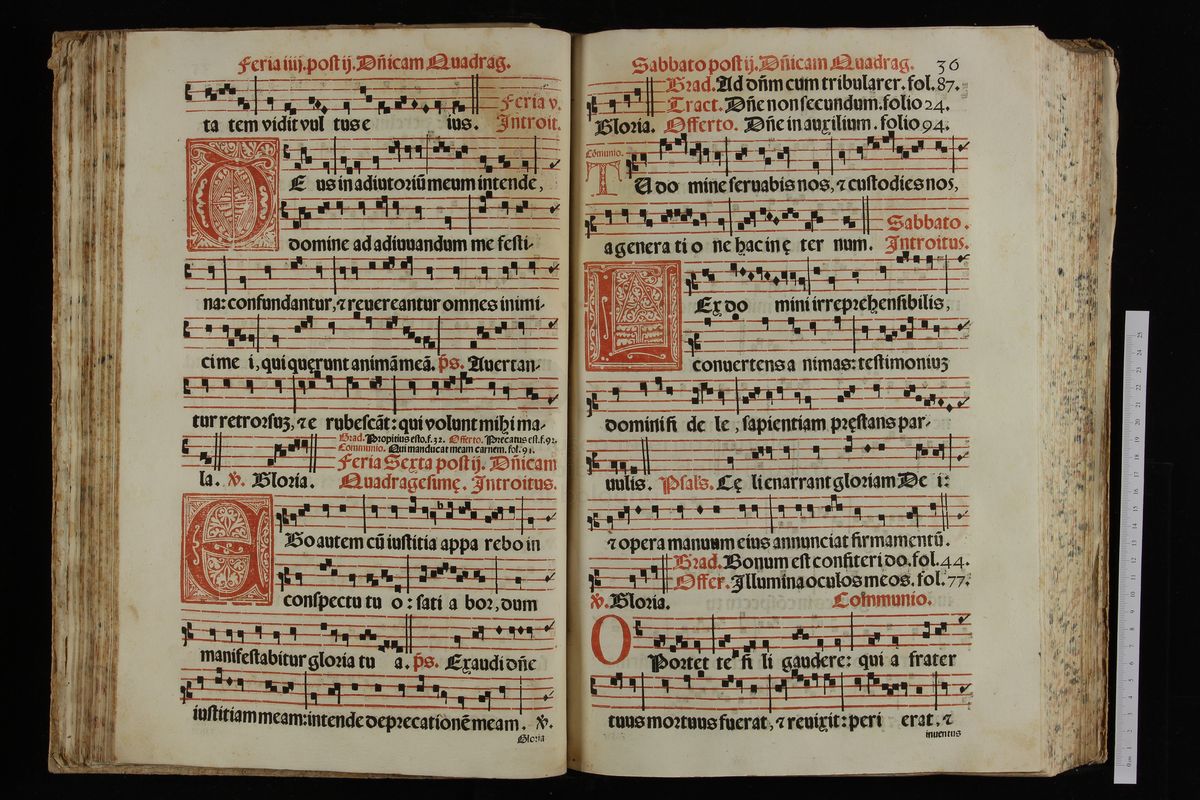 Feria iiij. post ij. Dñicam Quadrag.
ta tem vidit vul tus e ius. Feria v. Introit.
E us in adiutoriũ meum intende,
domine ad adiuuandum me festi-
na: confundantur, ⁊ reuereantur omnes inimi-
ci me i, qui quęrunt animã meã. p̃s. Auertan-
tur retrorsuʒ, ⁊ e rubescãt: qui volunt mihi ma-
Grad. Propitius esto. f. 32. Offerto. Precatus est. f. 92.
Communio. Qui manducat meam carnem. fol. 91.
Feria Sexta post ij. Dñicam
la. ℣. Gloria. Quadragesimę. Introitus.
E Go autem cũ iustitia appa rebo in
conspectu tu o: sati a bor, dum
manifestabitur gloria tu a. p̃s. Exaudi dñe
iustitiam meam: intende deprecationẽ meam. ℣.
Gloria
Sabbato post ij. Dñicam Quadrag. 36
Grad. Ad dñm cum tribularer. fol. 87.
Tract. Dñe non secundum. folio 24.
Gloria. Offerto. Dñe in auxilium. folio 94.
Cõmunio.
T U do mine seruabis nos, ⁊ custodies nos,
Sabbato.
a genera ti o ne hac in ę ter num. Introitus.
L Ex do mini irreprehensibilis,
conuertens a nimas: testimoniuʒ
domini fi de le, sapientiam pręstans par-
uulis. Psal's. Cę li enarrant gloriam De i:
⁊ opera manuum eius annunciat firmamentũ.
Grad. Bonum est confiteri do. fol. 44.
Offer. Illumina oculos meos. fol. 77.
℣. Gloria. Communio.
O Portet te fi li gaudere: qui a frater
tuus mortuus fuerat, ⁊ reuixit: peri erat, ⁊
inuentus